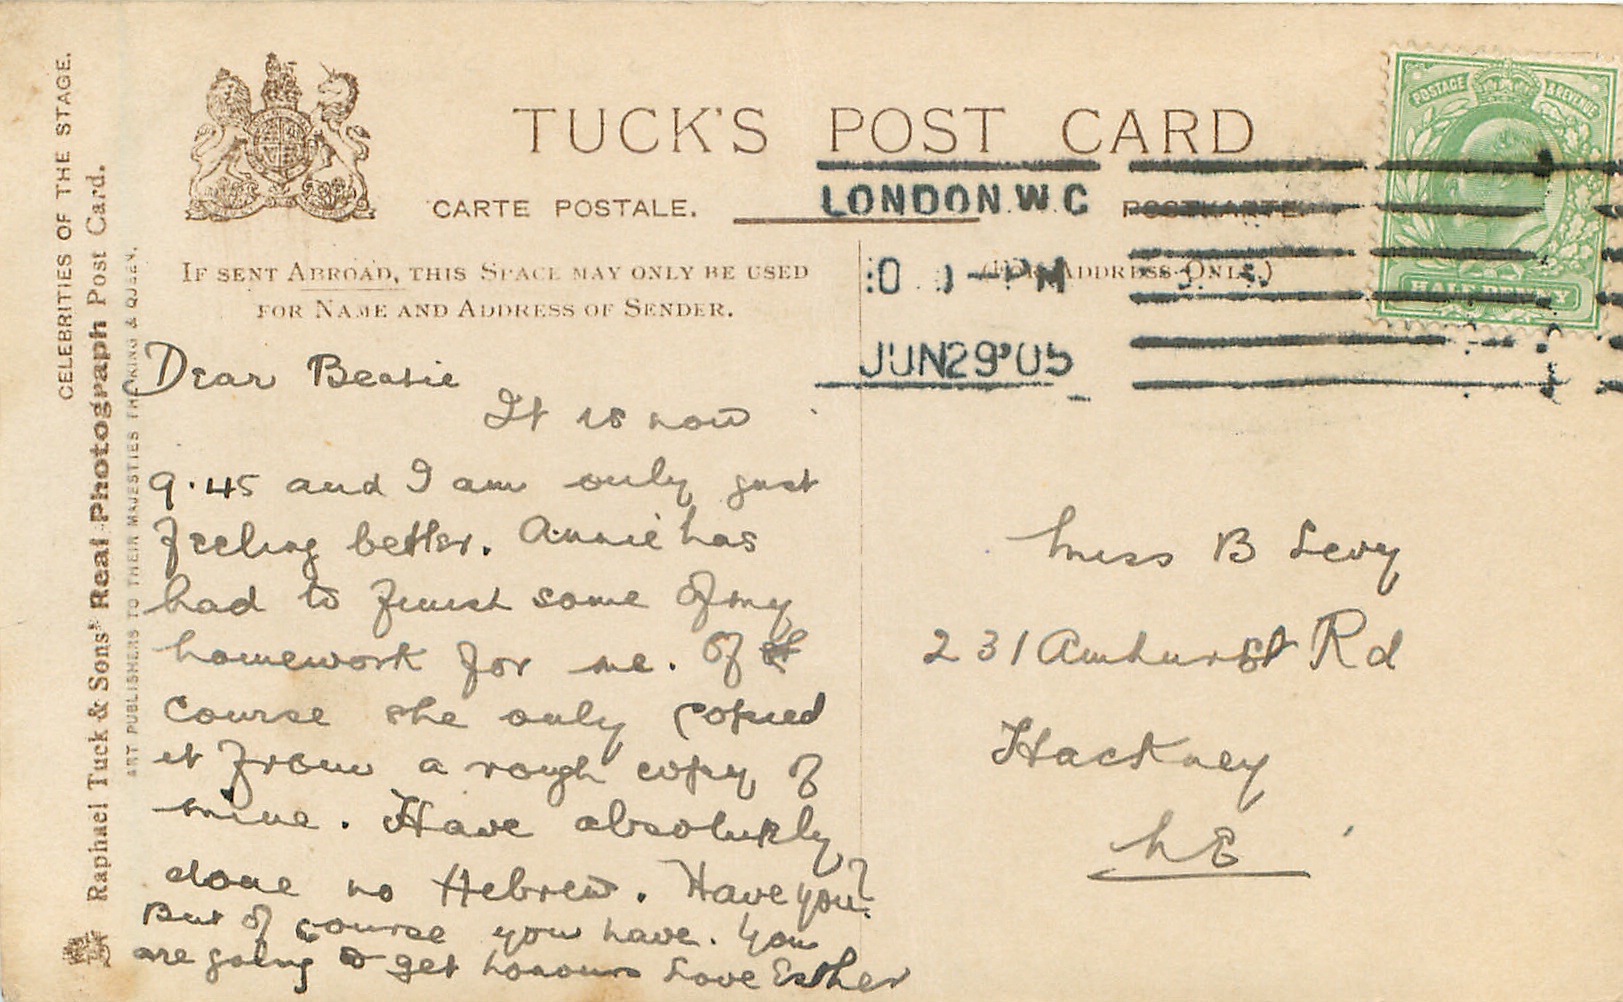 CELEBRITIES OF THE STAGE.
Raphael Tuck & Sons' Real Photograph Post Card.
ART PUBLISHERS TO THEIR MAJESTIES THE KING & QUEEN.
TUCK'S POST CARD
CARTE POSTALE. POSTKARTE.
IF SENT ABROAD, THIS SPACE MAY ONLY BE USED
FOR NAME AND ADDRESS OF SENDER.
(FOR ADDRESS ONLY.)
POSTAGE & REVENUE
HALF PENNY
LONDON.W.C
PM
JUN 29 '05
Dear Beasie
It is now
9.45 and I am only just
feeling better. Annie has
had to finish some of my
homework for me. Of
course she only copied
it from a rough copy of
mine. Have absolutely
done no Hebrew. Have you?
But of course you have. You
are going to get honours Love Esther
Miss B Levy
231 Amhurst Rd
Hackney
NE